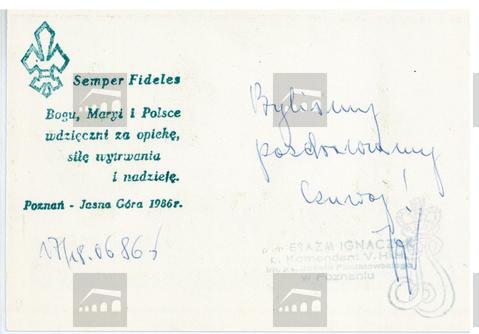 Semper Fideles
Bogu, Maryi i Polsce
wdzięczni za opiekę,
siłę wytrwania
i nadzieję.
Poznań - Jasna Góra 1986r.
17/18.06 86
Byliśmy
pozdrawiamy
Czuwaj!
ERAZM IGNACZAK
Komendant V.H.H.
w Poznaniu